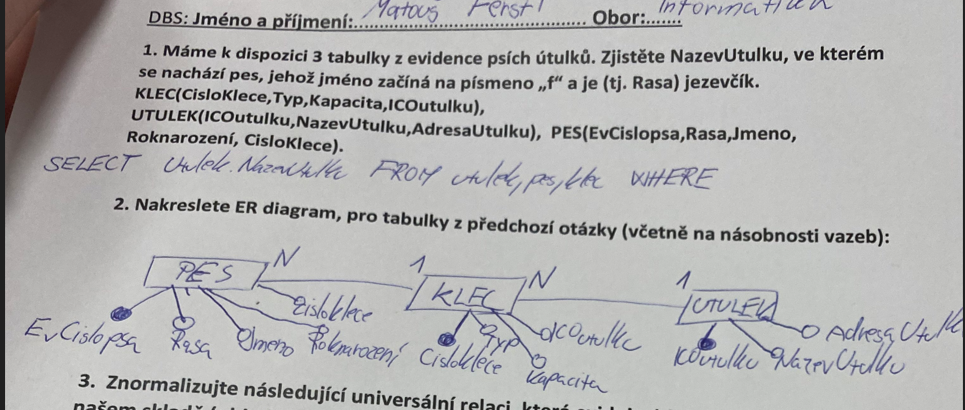 DBS: Jméno a příjmení: Matouš Ferstl Obor: Informatika
1. Máme k dispozici 3 tabulky z evidence psích útulků. Zjistěte NazevUtulku, ve kterém
se nachází pes, jehož jméno začíná na písmeno „f“ a je (tj. Rasa) jezevčík.
KLEC(CisloKlece,Typ,Kapacita,ICOutulku),
UTULEK(ICOutulku,NazevUtulku,AdresaUtulku), PES(EvCislopsa,Rasa,Jmeno,
Roknarození, CisloKlece).
SELECT Utulek.NazevUtulku FROM utulek, pes, klec WHERE
2. Nakreslete ER diagram, pro tabulky z předchozí otázky (včetně na násobnosti vazeb):
PES N 1 KLEC N 1 UTULEK
EvCislopsa Rasa Jmeno Roknarození Cisloklece Cisloklece Typ Kapacita ICOutulku ICOutulku NazevUtulku AdresaUtulk
3. Znormalizujte následující universální relaci, která
našem